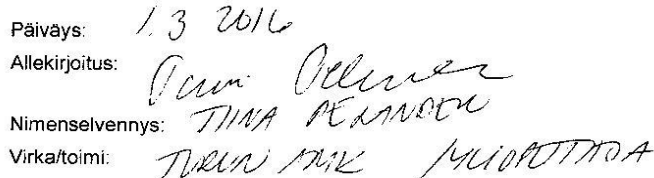 Päiväys: 1.3 2016
Allekirjoitus:
Nimenselvennys: TIINA PELANDER
Virka/toimi: TURUN AMK YLIOPETTAJA